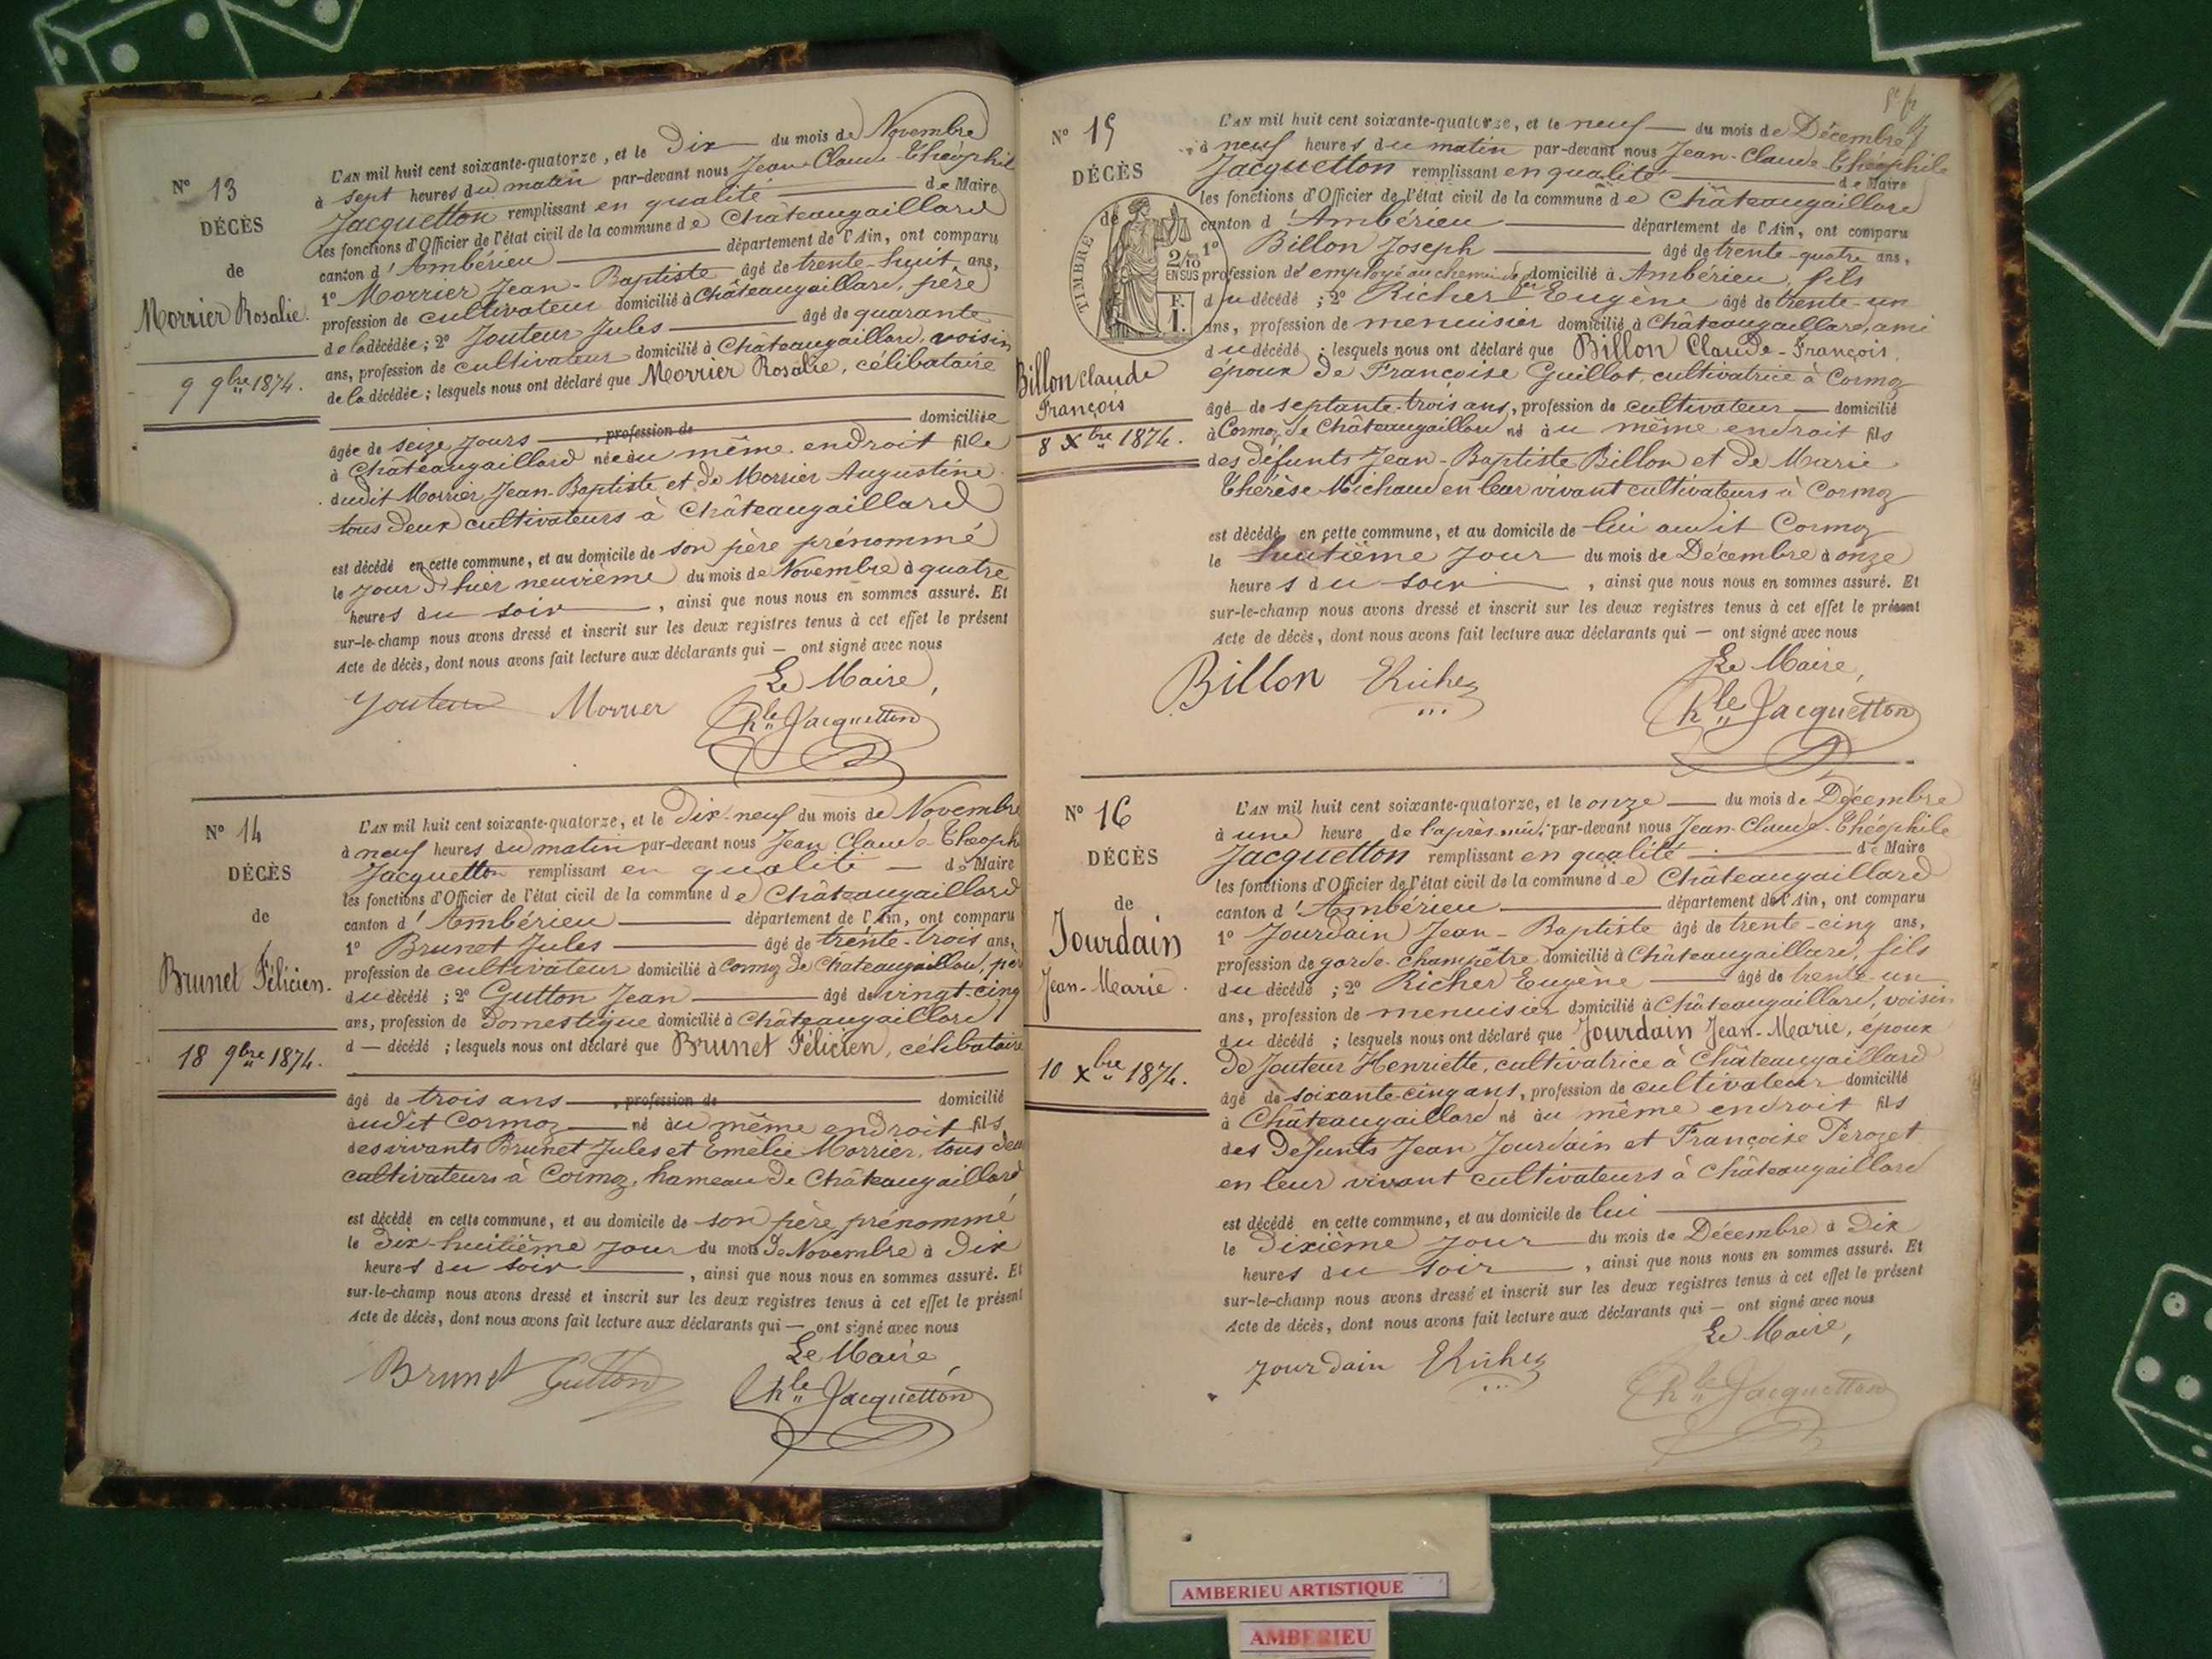 N° 13
DÉCÈS
de
Morrier Rosalie.
9 9bre 1874.
L'AN mil huit cent soixante-quatorze, et le Dix du mois de Novembre
à sept heures du matin par-devant nous Jean Claude Théophile
Jacquetton remplissant en qualité de Maire
les fonctions d'Officier de l'état civil de la commune de Châteaugaillard
canton d'Ambérieu département de l'Ain, ont comparu
1° Morrier Jean-Baptiste âgé de trente-huit ans,
profession de cultivateur domicilié à Châteaugaillard, père
de la décédée; 2° Jouteur Jules âgé de quarante
ans, profession de cultivateur domicilié à Châteaugaillard, voisin
de la décédée; lesquels nous ont déclaré que Morrier Rosalie, célibataire
âgée de seize jours , profession de domiciliée
à Châteaugaillard née au même endroit fille
dudit Morrier Jean-Baptiste et de Morrier Augustine
tous deux cultivateurs à Châteaugaillard
est décédé en cette commune, et au domicile de son père prénommé
le jour d'hier neuvième du mois de Novembre à quatre
heures du soir , ainsi que nous nous en sommes assuré. Et
sur-le-champ nous avons dressé et inscrit sur les deux registres tenus à cet effet le présent
Acte de décès, dont nous avons fait lecture aux déclarants qui — ont signé avec nous
Le Maire,
Jouteur Morrier Phle Jacquetton
N° 14
DÉCÈS
de
Brunet Félicien.
18 9bre 1874.
L'AN mil huit cent soixante-quatorze, et le Dix-neuf du mois de Novembre
à neuf heures du matin par-devant nous Jean Claude Théoph
Jacquetton remplissant en qualité — de Maire
les fonctions d'Officier de l'état civil de la commune de Châteaugaillard
canton d'Ambérieu département de l'Ain, ont comparu
1° Brunet Jules âgé de trente-trois ans,
profession de cultivateur domicilié à Cormoz de Châteaugaillard, père
du décédé ; 2° Gutton Jean âgé de vingt-cinq
ans, profession de Domestique domicilié à Châteaugaillard
d — décédé ; lesquels nous ont déclaré que Brunet Félicien, célibataire
âgé de trois ans , profession de domicilié
audit Cormoz né au même endroit fils
des vivants Brunet Jules et Emélie Morrier, tous deux
cultivateurs à Cormoz, hameau de Châteaugaillard
est décédé en cette commune, et au domicile de son père prénommé
le Dix-huitième jour du mois de Novembre à Dix
heures du soir , ainsi que nous nous en sommes assuré. Et
sur-le-champ nous avons dressé et inscrit sur les deux registres tenus à cet effet le présent
Acte de décès, dont nous avons fait lecture aux déclarants qui — ont signé avec nous
Le Maire,
Brunet Gutton Phle Jacquetton
N° 15
DÉCÈS
de
TIMBRE
2/10
EN SUS
F.
1.
Billon Claude
François
8 Xbre 1874.
L'AN mil huit cent soixante-quatorze, et le neuf — du mois de Décembre
à neuf heures du matin par-devant nous Jean-Claude Théophile
Jacquetton remplissant en qualité de Maire
les fonctions d'Officier de l'état civil de la commune de Châteaugaillard
canton d'Ambérieu département de l'Ain, ont comparu
1° Billon Joseph âgé de trente-quatre ans,
profession de employé au chemin de fer domicilié à Ambérieu, fils
du décédé ; 2° Richer Eugène âgé de trente-un
ans, profession de menuisier domicilié à Châteaugaillard, ami
du décédé ; lesquels nous ont déclaré que Billon Claude-François,
époux de Françoise Guillot, cultivatrice à Cormoz
âgé de septante-trois ans, profession de cultivateur — domicilié
à Cormoz, de Châteaugaillard né au même endroit fils
des défunts Jean-Baptiste Billon et de Marie
Thérèse Michaud en leur vivant cultivateurs à Cormoz
est décédé en cette commune, et au domicile de lui audit Cormoz
le huitième jour du mois de Décembre à onze
heures du soir , ainsi que nous nous en sommes assuré. Et
sur-le-champ nous avons dressé et inscrit sur les deux registres tenus à cet effet le présent
Acte de décès, dont nous avons fait lecture aux déclarants qui — ont signé avec nous
Le Maire,
Billon Richer Phle Jacquetton
N° 16
DÉCÈS
de
Jourdain
Jean-Marie.
10 Xbre 1874.
L'AN mil huit cent soixante-quatorze, et le onze — du mois de Décembre
à une heure de l'après-midi par-devant nous Jean-Claude-Théophile
Jacquetton remplissant en qualité de Maire
les fonctions d'Officier de l'état civil de la commune de Châteaugaillard
canton d'Ambérieu département de l'Ain, ont comparu
1° Jourdain Jean-Baptiste âgé de trente-cinq ans,
profession de garde-champêtre domicilié à Châteaugaillard, fils
du décédé ; 2° Richer Eugène âgé de trente-un
ans, profession de menuisier domicilié à Châteaugaillard, voisin
du décédé ; lesquels nous ont déclaré que Jourdain Jean-Marie, époux
de Jouteur Henriette, cultivatrice à Châteaugaillard
âgé de soixante-cinq ans, profession de cultivateur domicilié
à Châteaugaillard né au même endroit fils
des Défunts Jean Jourdain et Françoise Perozet
en leur vivant cultivateurs à Châteaugaillard
est décédé en cette commune, et au domicile de lui
le Dixième jour du mois de Décembre à Dix
heures du soir , ainsi que nous nous en sommes assuré. Et
sur-le-champ nous avons dressé et inscrit sur les deux registres tenus à cet effet le présent
Acte de décès, dont nous avons fait lecture aux déclarants qui — ont signé avec nous
Le Maire,
Jourdain Richer Phle Jacquetton
AMBERIEU ARTISTIQUE
AMBERIEU